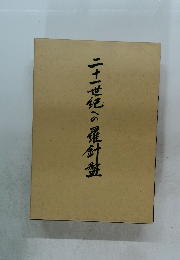 二十一世紀への羅針盤